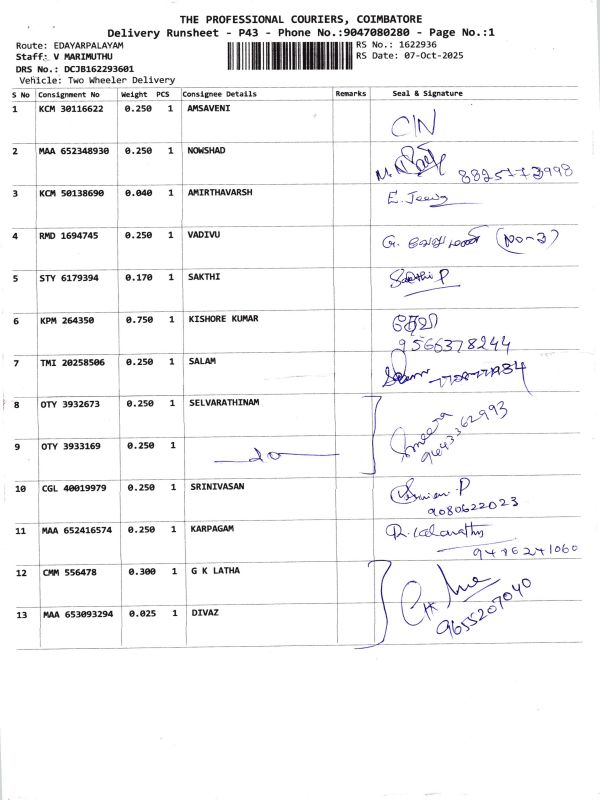 THE PROFESSIONAL COURIERS, COIMBATORE
Delivery Runsheet - P43 - Phone No.:9047080280 - Page No.:1
Route: EDAYARPALAYAM
RS No.: 1622936
Staff: V MARIMUTHU
RS Date: 07-Oct-2025
DRS No.: DCJB162293601
Vehicle: Two Wheeler Delivery
S No Consignment No Weight PCS Consignee Details Remarks Seal & Signature
1 KCM 30116622 0.250 1 AMSAVENI
C/N
2 MAA 652348930 0.250 1 NOWSHAD
3 KCM 50138690 0.040 1 AMIRTHAVARSH
4 RMD 1694745 0.250 1 VADIVU
(No-3)
5 STY 6179394 0.170 1 SAKTHI
Sakthi P
6 KPM 264350 0.750 1 KISHORE KUMAR
தேவி
9566378244
7 TMI 20258506 0.250 1 SALAM
8 OTY 3932673 0.250 1 SELVARATHINAM
Sameera
9643362993
9 OTY 3933169 0.250 1 do
10 CGL 40019979 0.250 1 SRINIVASAN
9080622023
11 MAA 652416574 0.250 1 KARPAGAM
9486241060
12 CMM 556478 0.300 1 G K LATHA
9655207040
13 MAA 653093294 0.025 1 DIVAZ